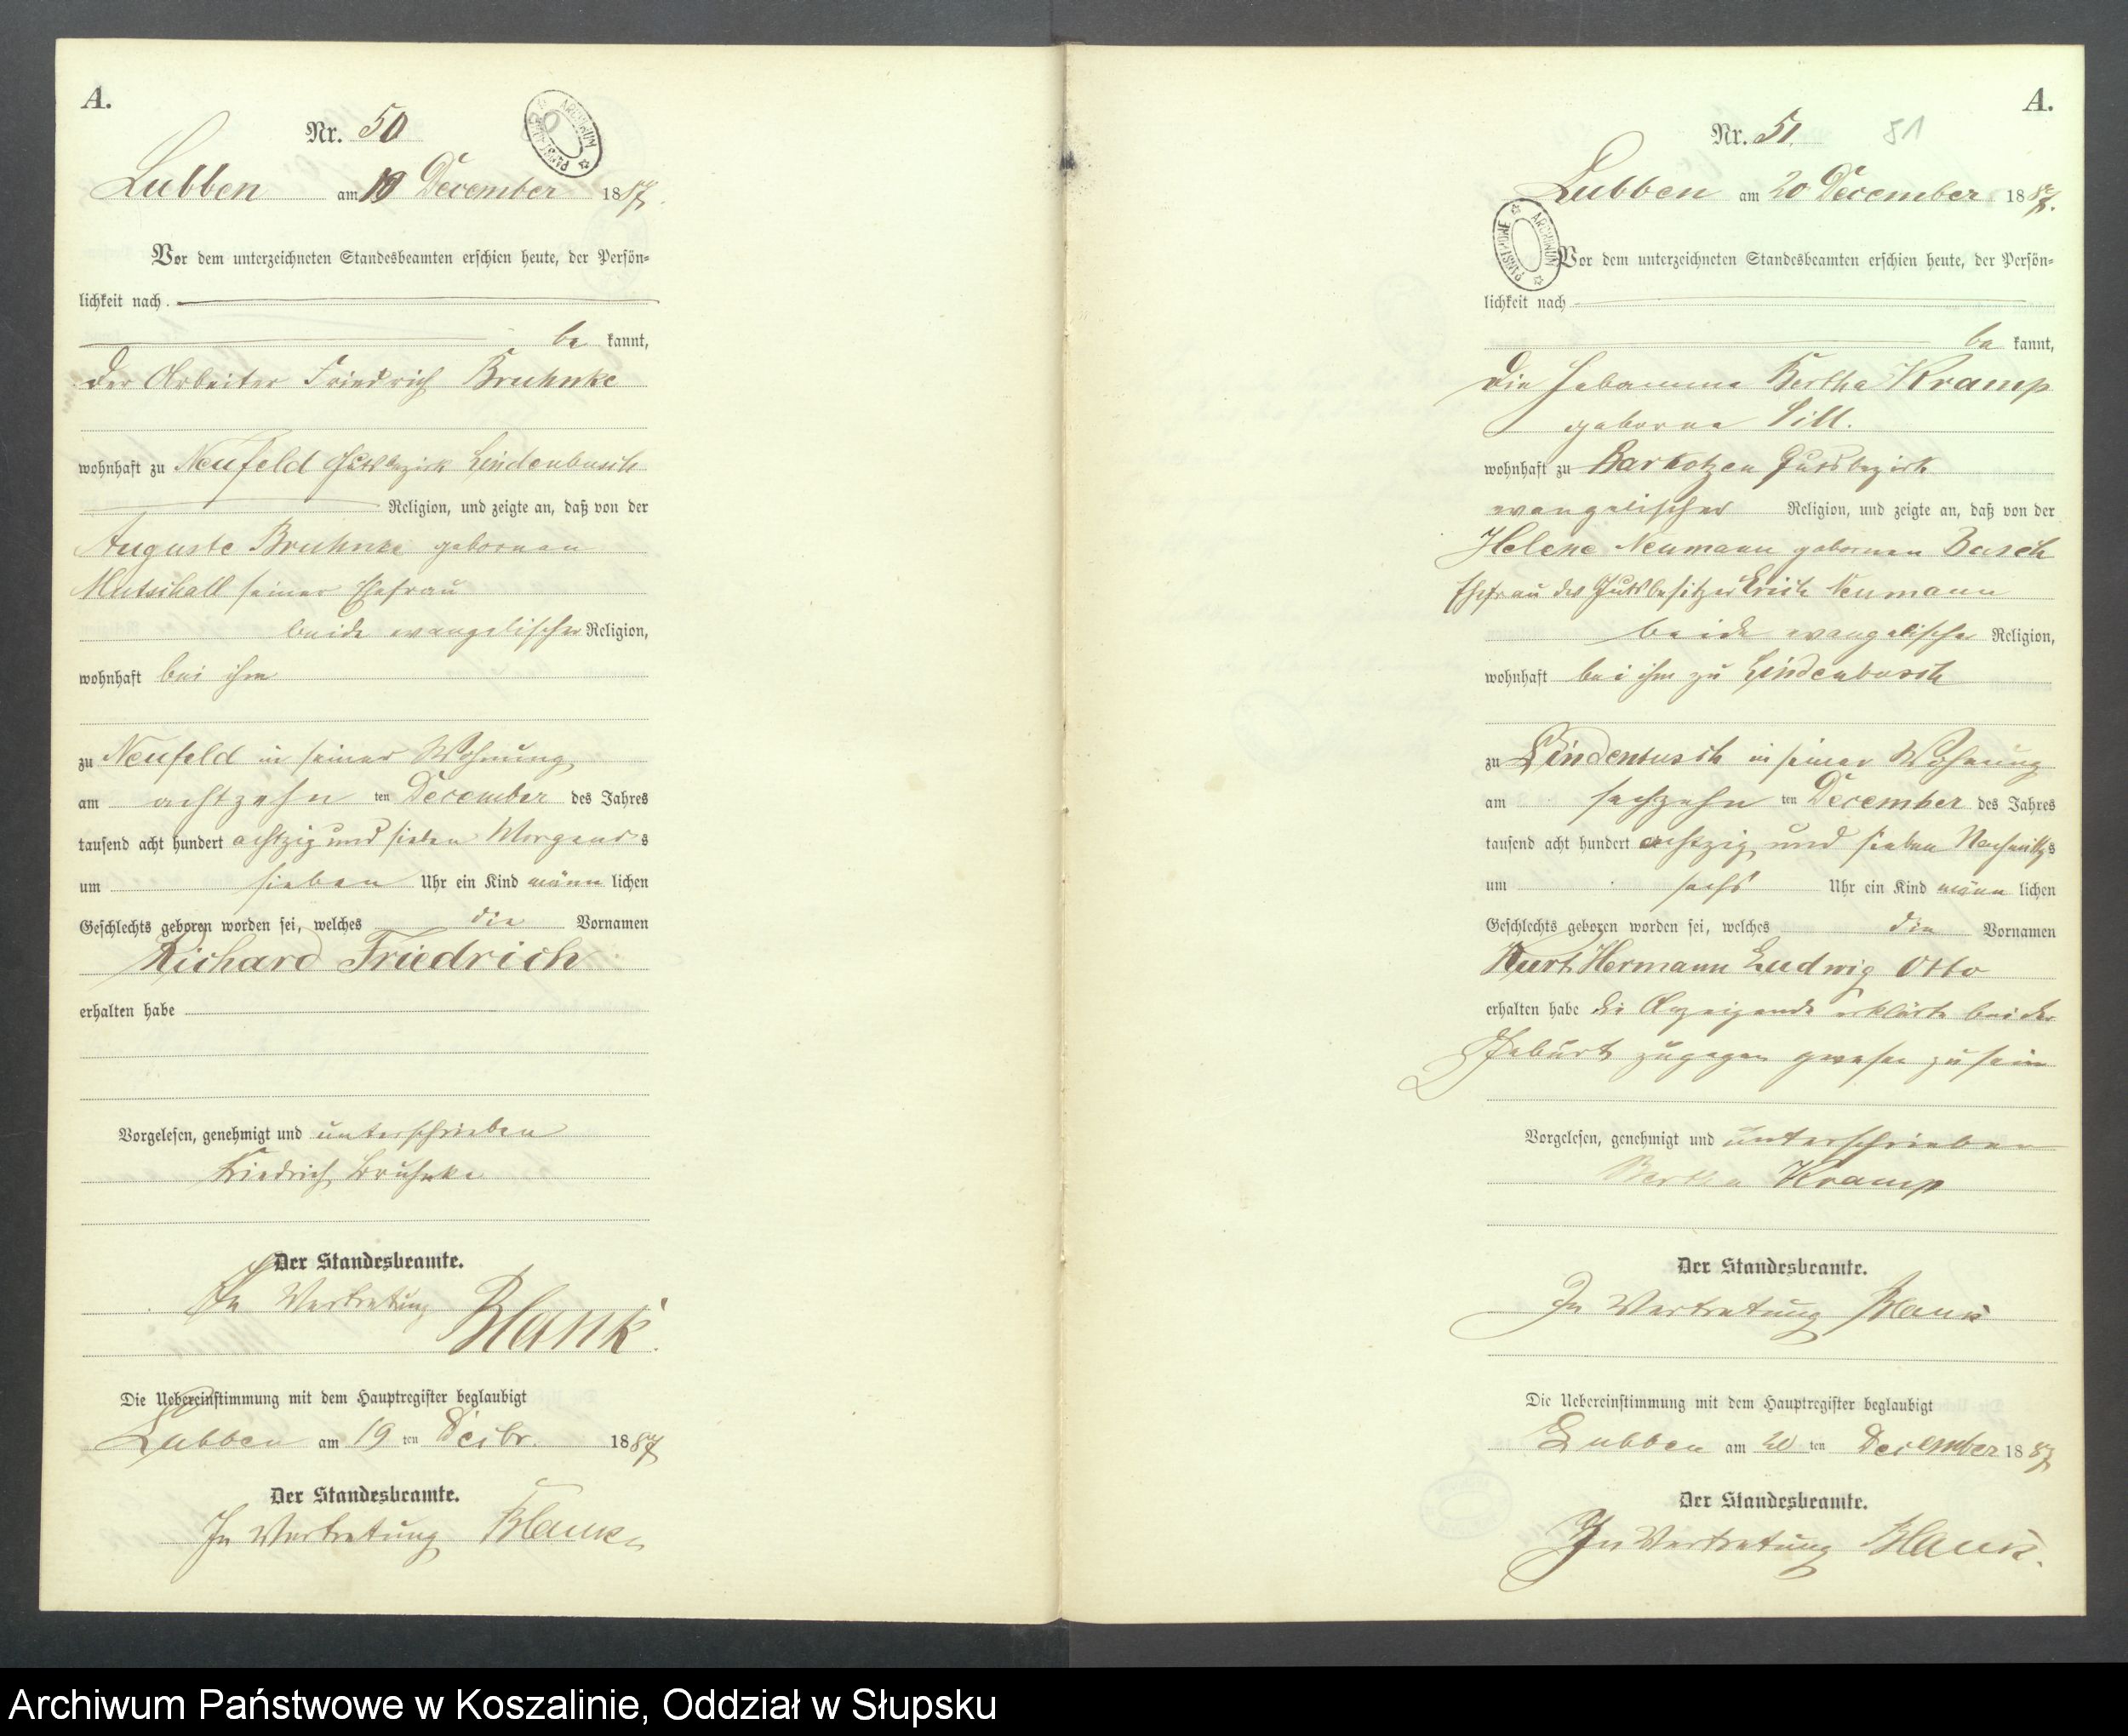 A.
Nr. 50
Lubben am 19 December 1887.
Vor dem unterzeichneten Standesbeamten erschien heute, der Persön=
lichkeit nach
be kannt,
der Arbeiter Friedrich Bruhnke
wohnhaft zu Neufeld Gutsbezirk Lindenbusch
Religion, und zeigte an, daß von der
Auguste Bruhnke gebornen
Mutschall seiner Ehefrau
beide evangelischer Religion,
wohnhaft bei ihm
zu Neufeld in seiner Wohnung
am achtzehn ten December des Jahres
tausend acht hundert achtzig und sieben Morgens
um sieben Uhr ein Kind männ lichen
Geschlechts geboren worden sei, welches die Vornamen
Richard Friedrich
erhalten habe
Vorgelesen, genehmigt und unterschrieben
Friedrich Bruhnke
Der Standesbeamte.
In Vertretung Blank.
Die Uebereinstimmung mit dem Hauptregister beglaubigt
Lubben am 19 ten Decbr. 1887
Der Standesbeamte.
In Vertretung Blank
A.
Nr. 51. 51
Lubben am 20 December 1887.
Vor dem unterzeichneten Standesbeamten erschien heute, der Persön=
lichkeit nach
be kannt,
die Hebamme Bertha Kramp
geborne Sill.
wohnhaft zu Barkotzen Gutsbezirk
evangelischer Religion, und zeigte an, daß von der
Helene Neumann gebornen Basch
Ehefrau des Gutsbesitzer Erich Neumann
beide evangelische Religion,
wohnhaft bei ihm zu Lindenbusch
zu Lindenbusch in seiner Wohnung
am sechzehn ten December des Jahres
tausend acht hundert achtzig und sieben Nachmittgs
um sechs Uhr ein Kind männ lichen
Geschlechts geboren worden sei, welches die Vornamen
Kurt Hermann Ludwig Otto
erhalten habe die Anzeigende erklärte bei der
Geburt zugegen gewesen zu sein
Vorgelesen, genehmigt und unterschrieben
Bertha Kramp
Der Standesbeamte.
In Vertretung Blank
Die Uebereinstimmung mit dem Hauptregister beglaubigt
Lubben am 20 ten December 1887
Der Standesbeamte.
In Vertretung Blank.
ARCHIWUM PAŃSTWOWE
ARCHIWUM PAŃSTWOWE
Archiwum Państwowe w Koszalinie, Oddział w Słupsku